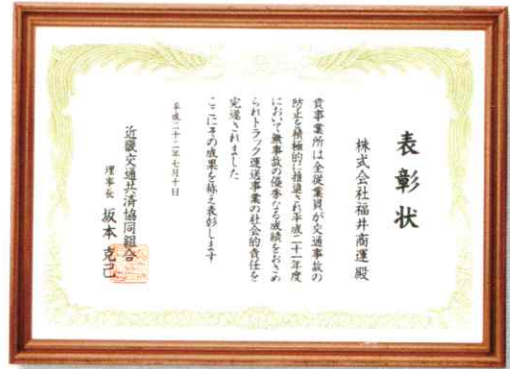 表彰状
株式会社福井商運殿
貴事業所は全従業員が交通事故の
防止を積極的に推進され平成二十一年度
において無事故の優秀なる成績をおさめ
られトラック運送事業の社会的責任を
完遂されました
ここにその成果を称え表彰します
平成二十二年七月十日
近畿交通共済協同組合
理事長 坂本克己